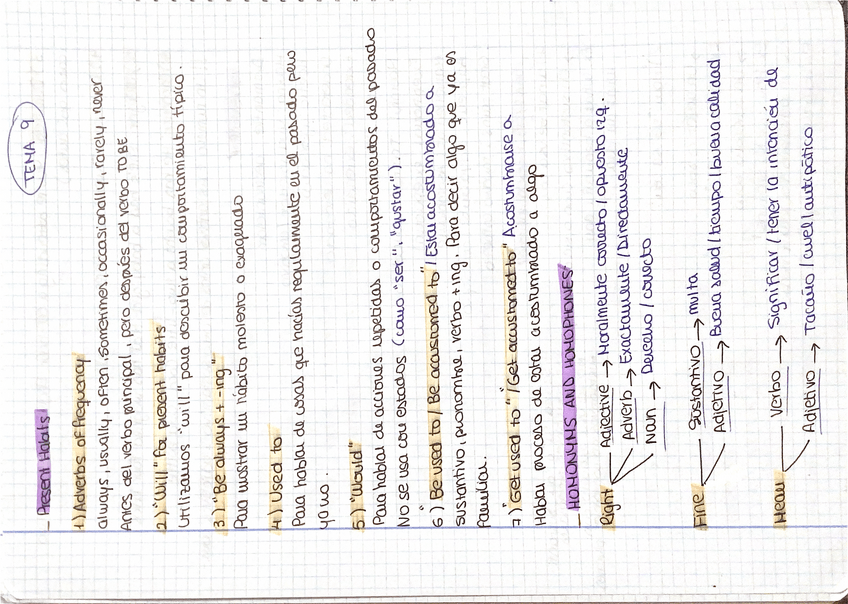 TEMA 9
- Present Habits
1) Adverbs of frequency
always, usually, often, sometimes, occasionally, rarely, never
Antes del verbo principal, pero después del verbo TO BE
2) "Will" for present habits
Utilizamos "will" para describir un comportamiento típico.
3) "Be always + -ing"
Para mostrar un hábito molesto o exagerado
4) Used to
Para hablar de cosas que hacías regularmente en el pasado pero
ya no.
5) "Would"
Para hablar de acciones repetidas o comportamientos del pasado
No se usa con estados (como "ser", "gustar").
6) "Be used to / Be accustomed to" / Estar acostumbrado a
sustantivo, pronombre, verbo + ing. Para decir algo que ya es
familiar.
7) "Get used to" / "Get accustomed to" Acostumbrarse a
Hablar proceso de estar acostumbrado a algo
- HOMONYMS AND HOMOPHONES
Right Adjective → Moralmente correcto / opuesto izq.
Adverb → Exactamente / Directamente
Noun → Derecho / correcto
Fine Sustantivo → multa
Adjetivo → Buena salud / tiempo / buena calidad
Mean Verbo → Significar / tener la intención de
Adjetivo → Tacaño / cruel / antipático